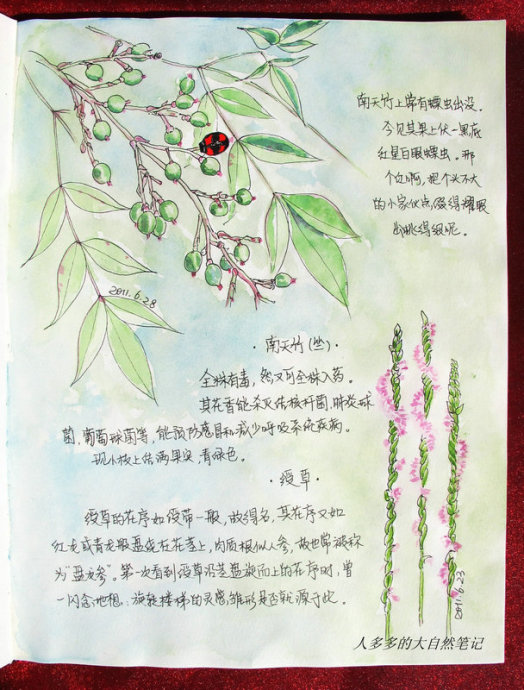 南天竹上常有瓢虫出没。
今见其果上伏一黑底
红星白眼瓢虫。那
个红啊,把个头不大
的小家伙点缀得耀眼
出跳得很呢。
2011.6.28
·南天竹(竺)·
全株有毒,然又可全株入药。
其花香能杀灭结核杆菌,肺炎球
菌,葡萄球菌等,能预防感冒和减少呼吸系统疾病。
现小枝上结满果实,青绿色。
·绶草·
绶草的花序如绶带一般,故得名,其花序又如
红龙或青龙般盘绕在花茎上,肉质根似人参,故也常被称
为"盘龙参"。第一次看到绶草沿茎盘旋而上的花序时,曾
一闪念地想:旋转楼梯的灵感,雏形是否就源于此。
2011.6.23
人多多的大自然笔记